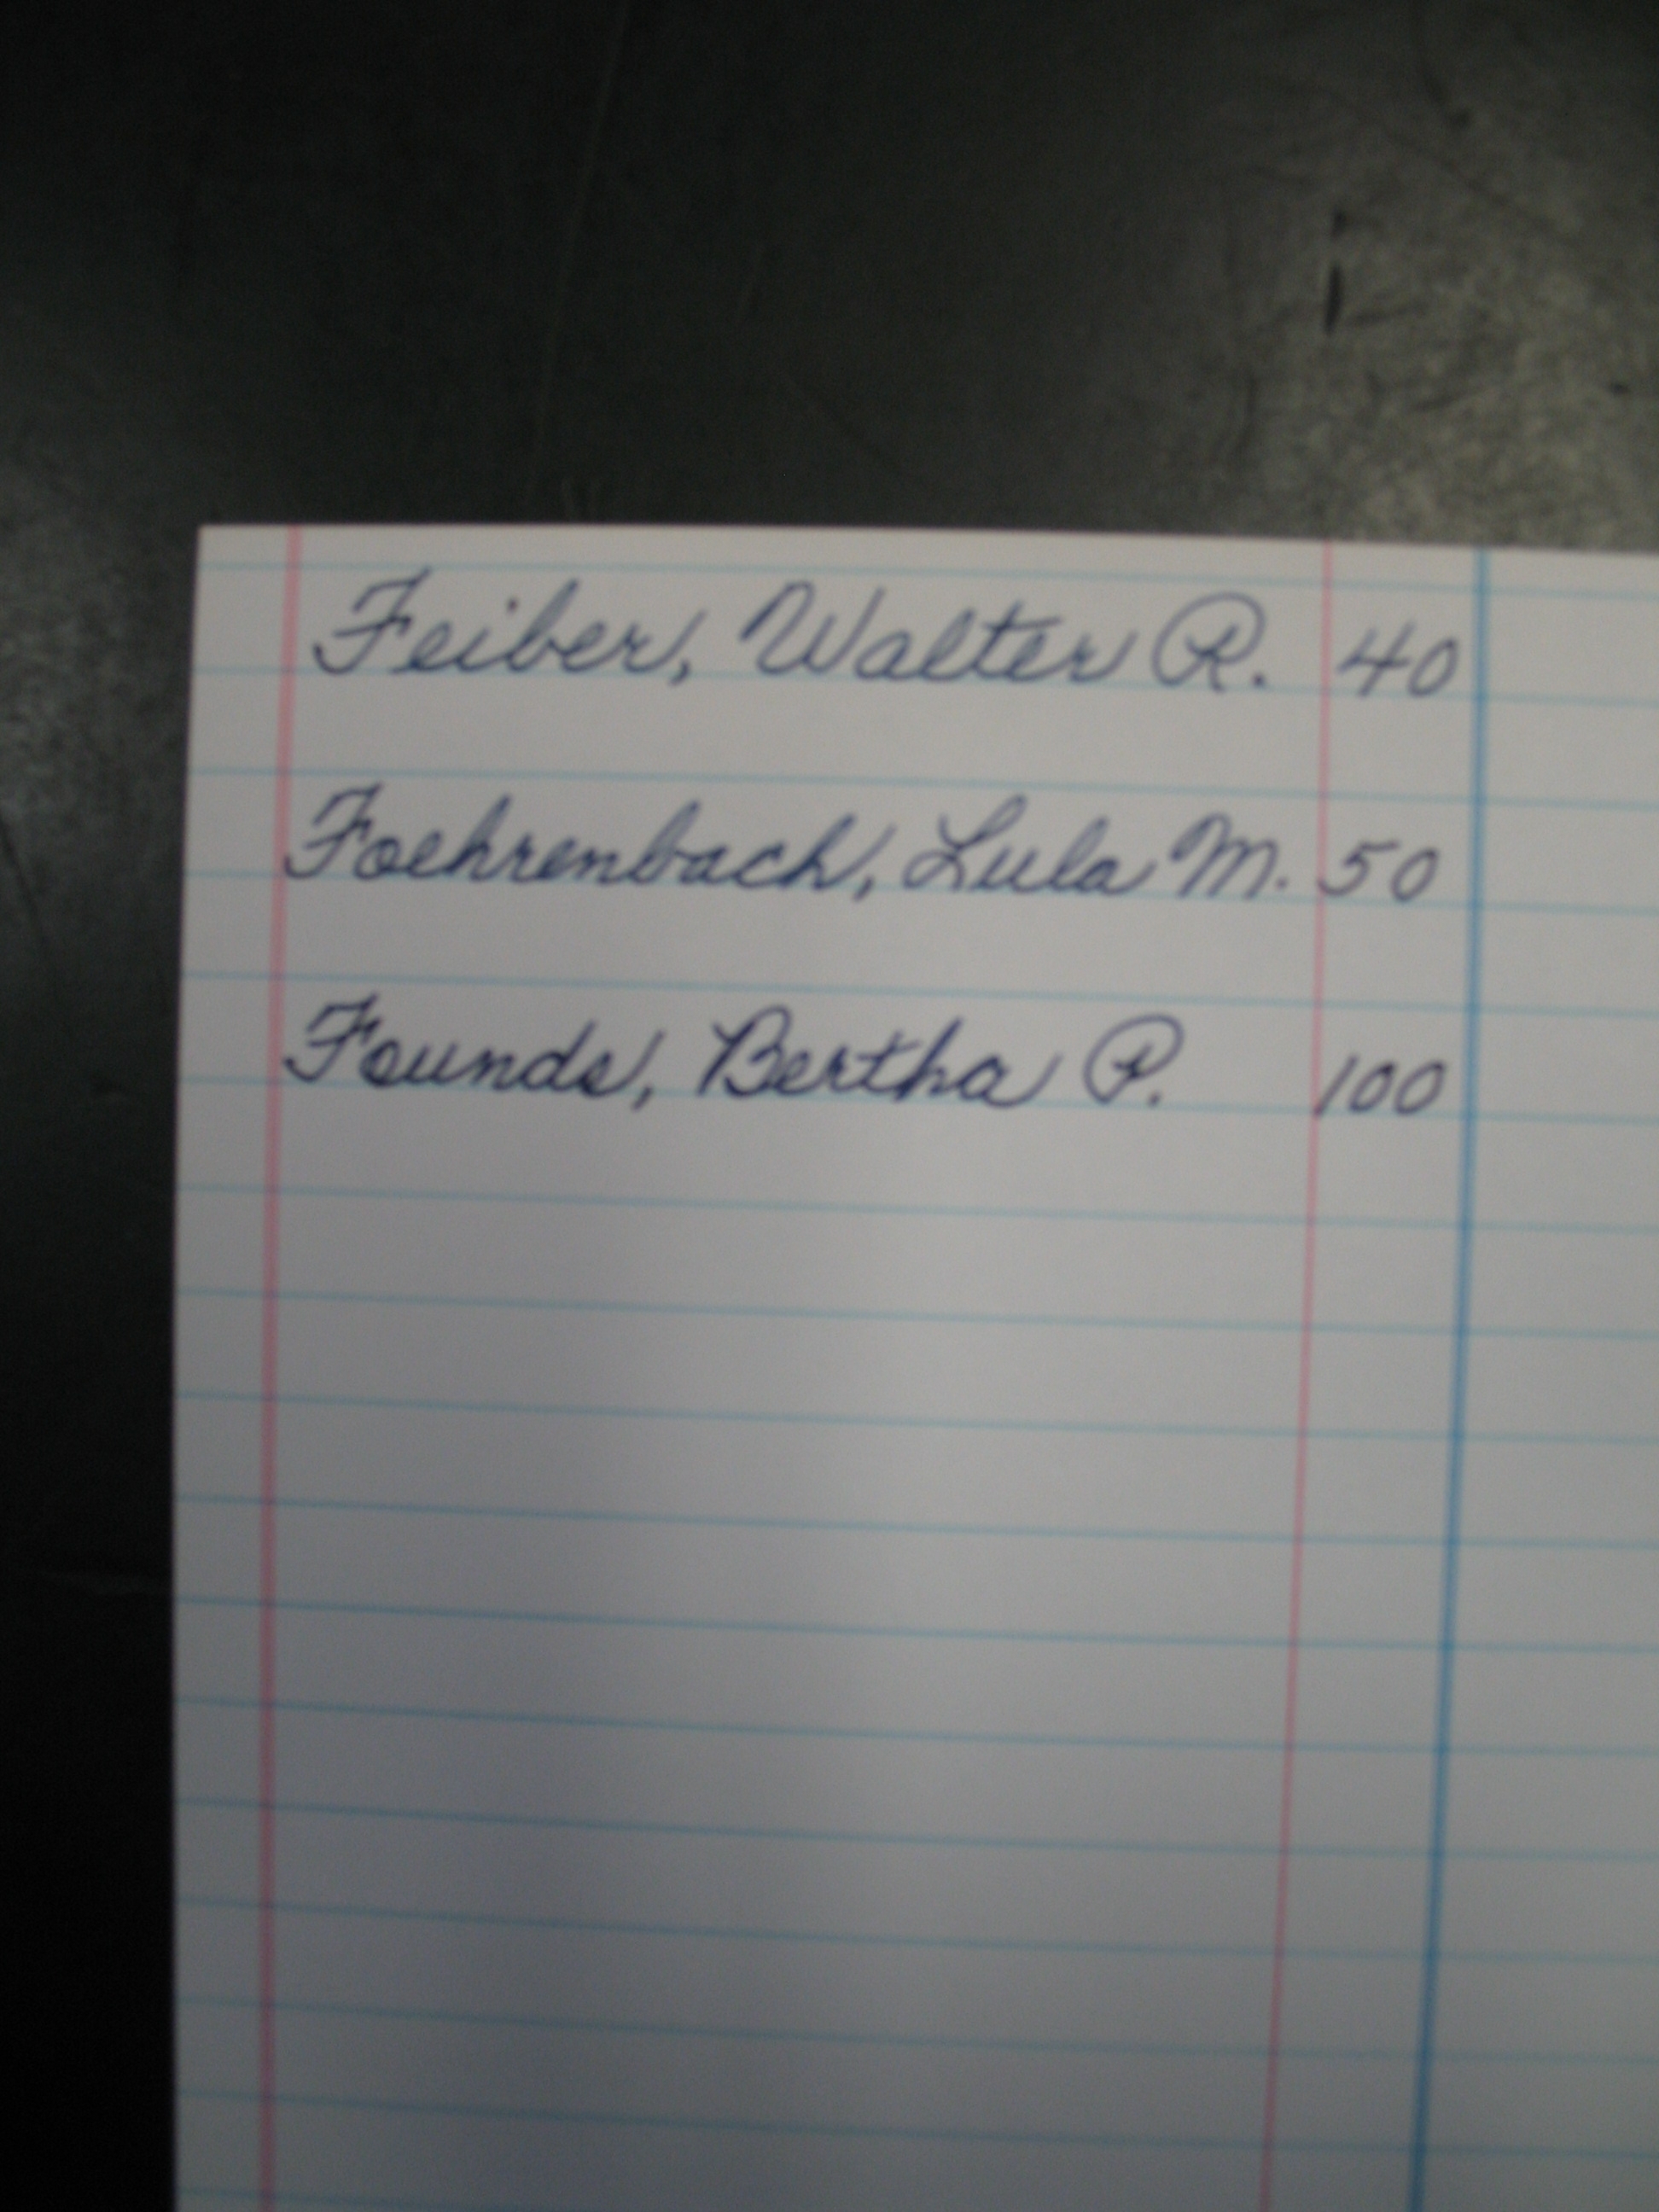 Feiber, Walter R. 40
Foehrenbach, Lula M. 50
Founds, Bertha P. 100